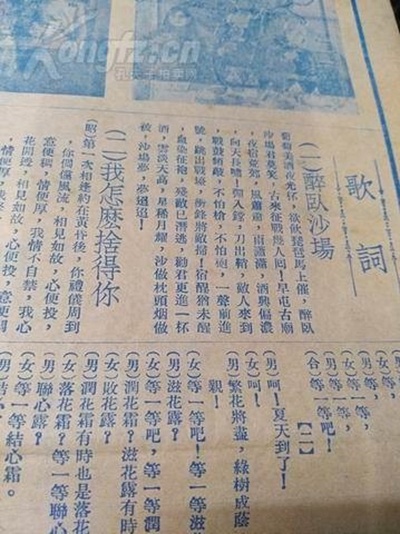 歌詞
(一)醉臥沙場
葡萄美酒夜光杯,欲飲琵琶馬上催,醉臥
沙場君莫笑,古來征戰幾人回!早屯古廟
,夜宿荒郊,風肅肅,雨瀟瀟,酒興偏濃
,向天長嘯!彈入鏜,刀出鞘,敵人來到
,戰鼓頻敲,不怕槍,不怕砲,一聲前進
號,跳出戰壕,衝鋒將敵掃!宿醒猶未醒
,血染征袍,殘敵已潛逃,勸君更進一杯
酒,雲淡天高,星稀月耀,沙做枕頭烟做
被,沙場夢,夢迢迢!
(二)我怎麽捨得你
(昭)第一次相逢約在黃昏後,你禮儀周到
,你倜儻風流,相見如故,心便投,
意便稠,情便厚,我情不自禁,我心
花開透,相見如故,心便投,意便稠
,情便厚,
男)等一等,
(女)等一等,
(男)等一等吧,
(合)等一等吧!
【二】
(男)呵!夏天到了!
(女)呵!
(男)繁花將盡,綠樹成蔭
(女)等一等吧!等一等滋
(男)滋花露?
(女)等一等吧,等一等潤
(男)潤花霜?滋花露有時
(女)敗花露?
(男)潤花霜有時也是落花
(女)落花霜?等一等聯心
(男)聯心露?
(女)等一等結心霜。
kongfz.cn